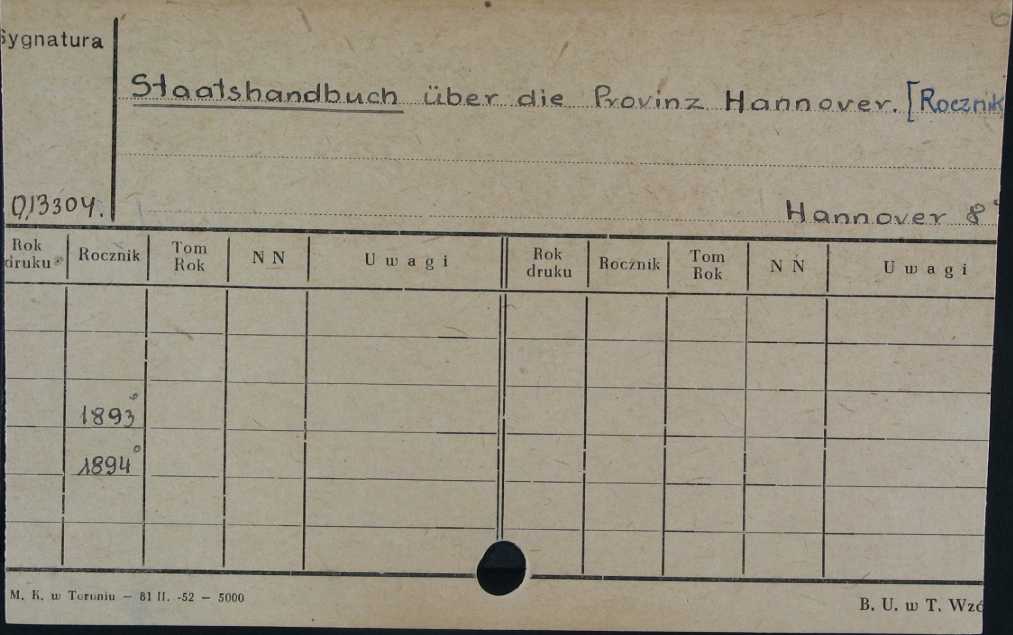 Sygnatura
Staatshandbuch über die Provinz Hannover. [Rocznik
013304.
Hannover 8°
Rok druku Rocznik Tom Rok N N Uwagi Rok druku Rocznik Tom Rok N N Uwagi
1893°
1894°
M. K. w Toruniu — 81 II. -52 — 5000
B. U. w T. Wzó